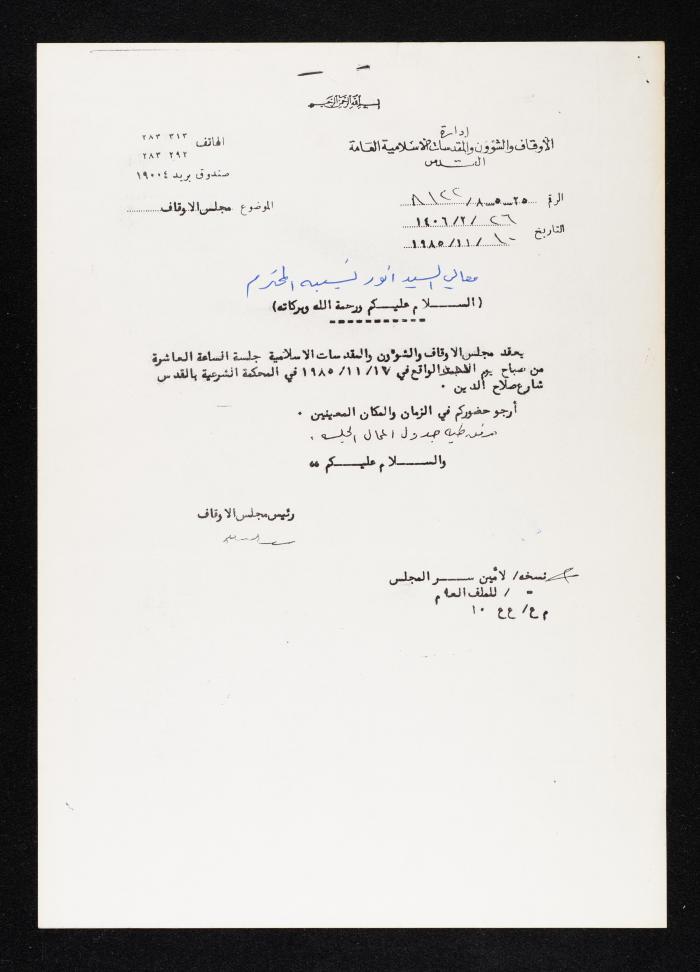 بسم الله الرحمن الرحيم
إدارة
الأوقاف والشؤون والمقدسات الاسلامية العامة
القدس
الهاتف ٢٨٣ ٣١٣
٢٨٣ ٢٩٢
صندوق بريد ١٩٠٠٤
الرقم ٢٥-٥-٨/٨١٢٢
الموضوع مجلس الاوقاف
التاريخ ٢٦ /١٤٠٦/٢
١٠ /١٩٨٥/١١
معالي السيد انور نسيبه المحترم
(السلام عليكم ورحمة الله وبركاته)
يعقد مجلس الاوقاف والشؤون والمقدسات الاسلامية جلسة الساعة العاشرة
من صباح يوم الواقع في ١٩٨٥/١١/١٧ في المحكمة الشرعية بالقدس
شارع صلاح الدين ٠
أرجو حضوركم في الزمان والمكان المعينين ٠
مرفق طيه جدول اعمال الجلسه .
والسلام عليكم ،،
رئيس مجلس الاوقاف
نسخه/ لأمين سر المجلس
" / للملف العام
م ع/ ع ع ١٠